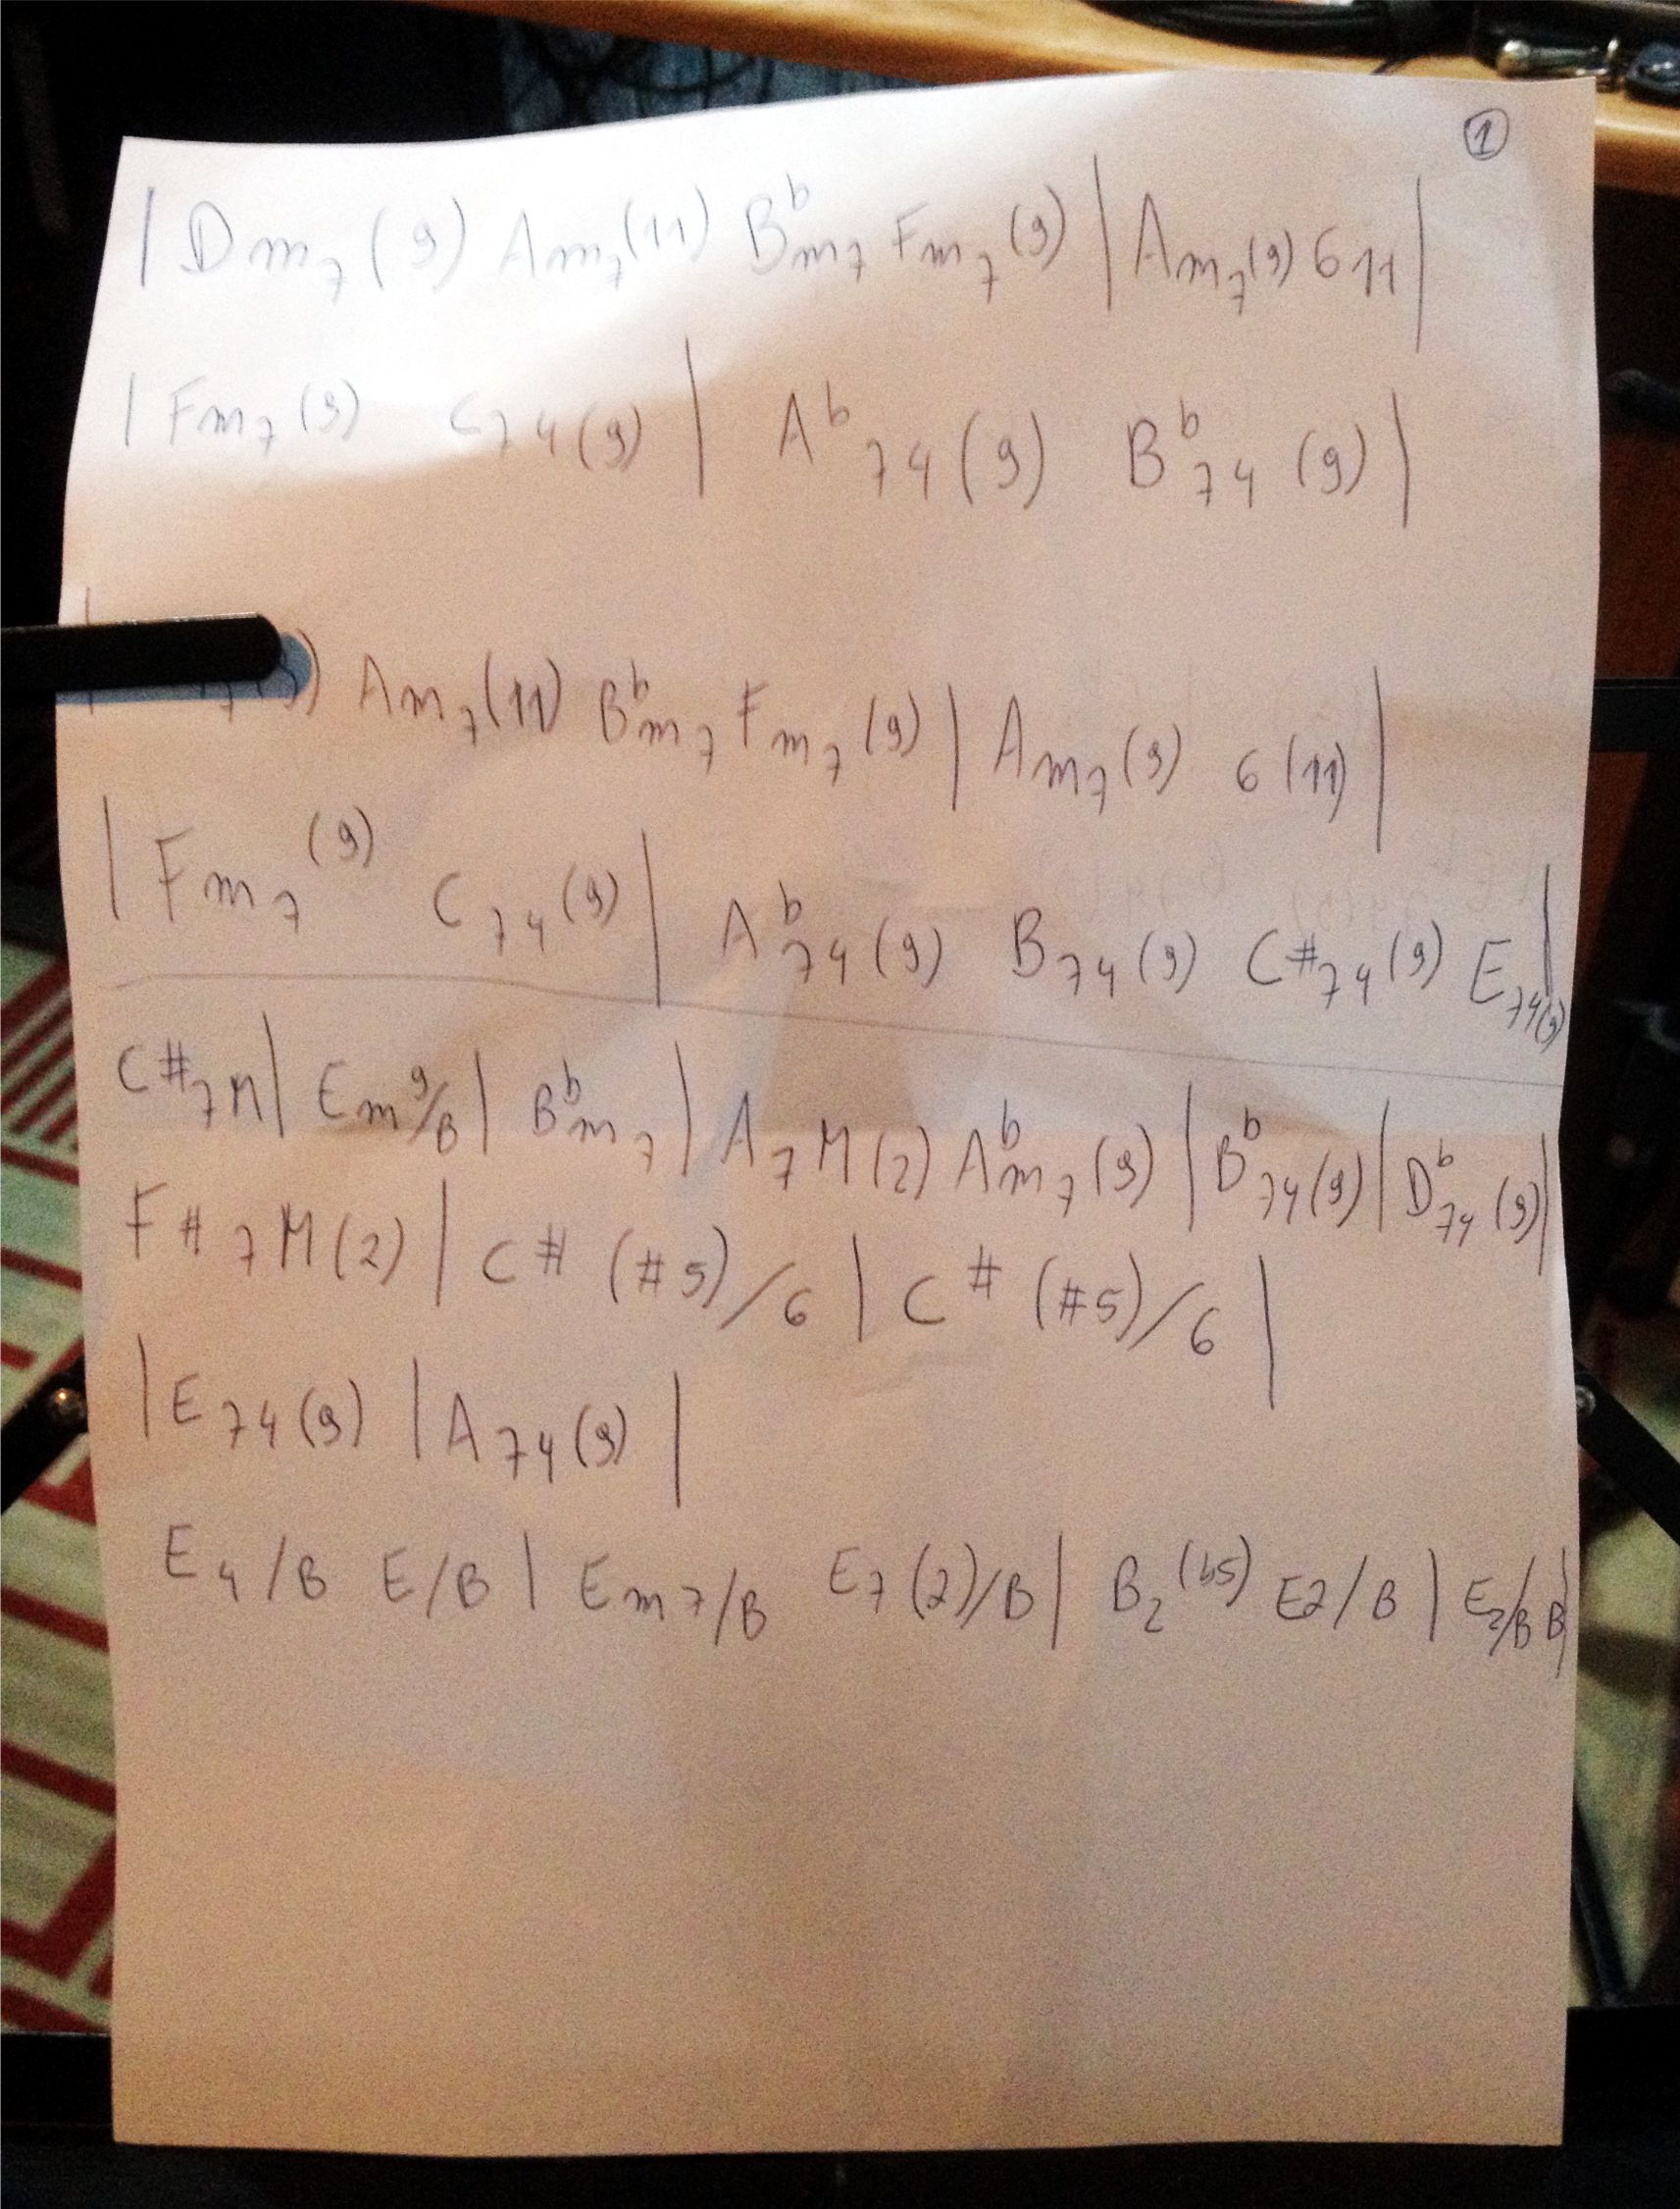 1
| Dm7(9) Am7(11) Bbm7 Fm7(9) | Am7(9) 6 11 |
| Fm7(9) C74(9) | Ab74(9) Bb74(9) |
| 7(9) Am7(11) Bbm7 Fm7(9) | Am7(9) 6(11) |
| Fm7(9) C74(9) | Ab74(9) B74(9) C#74(9) E74(9) |
C#7M | Em9/B | Bbm7 | A7M(2) Abm7(9) | Bb74(9) | Db74(9) |
F#7M(2) | C# (#5)/6 | C# (#5)/6 |
| E74(9) | A74(9) |
E4/B E/B | Em7/B E7(2)/B | B2(b5) E2/B | E2/B B |